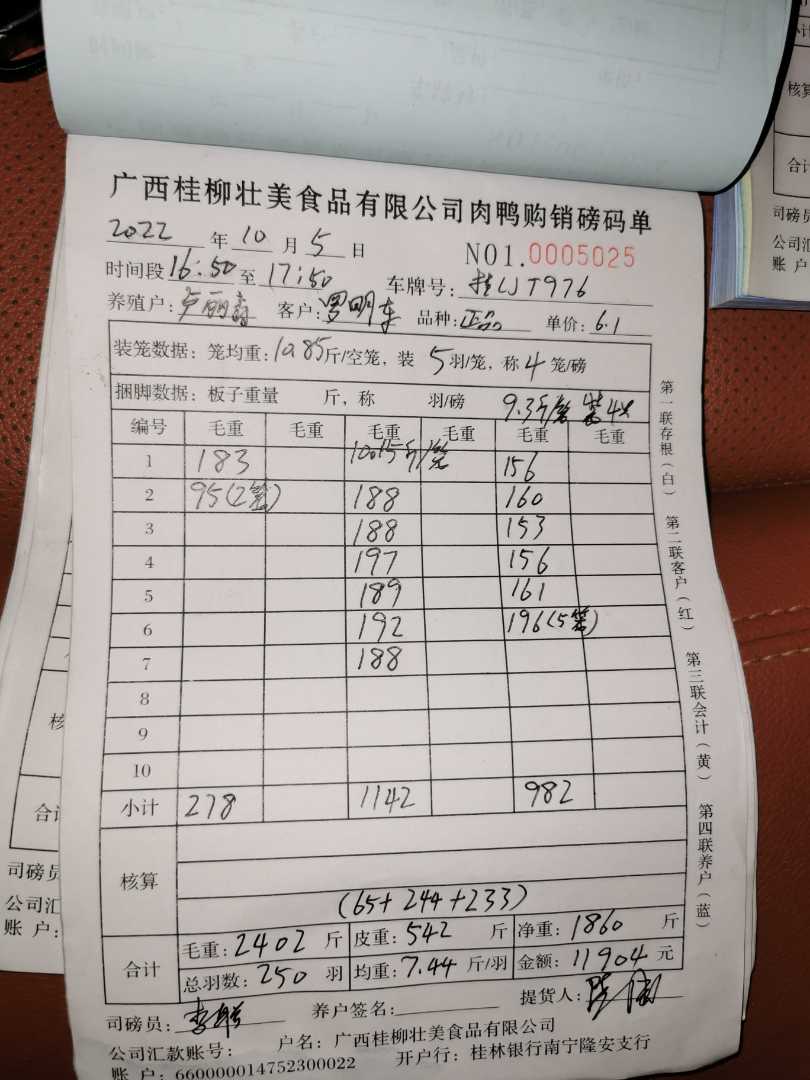 广西桂柳壮美食品有限公司肉鸭购销磅码单
2022 年 10 月 5 日 NO1.0005025
时间段 16:50 至 17:50 车牌号: 桂LJT976
养殖户: 卢丽 客户: 罗明车 品种: 正品 单价: 6.1
装笼数据: 笼均重: 10.85 斤/空笼, 装 5 羽/笼, 称 4 笼/磅
捆脚数据: 板子重量 斤, 称 羽/磅 9.3斤/笼 装4只
编号 毛重 毛重 毛重 毛重 毛重 毛重
1 183 10.15斤/笼 156
2 95(2笼) 188 160
3 188 153
4 197 156
5 189 161
6 192 196(5笼)
7 188
8
9
10
小计 278 1142 982
核算
(65+244+233)
合计 毛重: 2402 斤 皮重: 542 斤 净重: 1860 斤
总羽数: 250 羽 均重: 7.44 斤/羽 金额: 11904 元
司磅员: 养户签名: 提货人:
公司汇款账号: 户名: 广西桂柳壮美食品有限公司
账 户: 660000014752300022 开户行: 桂林银行南宁隆安支行
第一联存根(白)
第二联客户(红)
第三联会计(黄)
第四联养户(蓝)
核
合计
司磅员
公司汇
账 户:
核算
合计
司磅员
公司汇
账 户